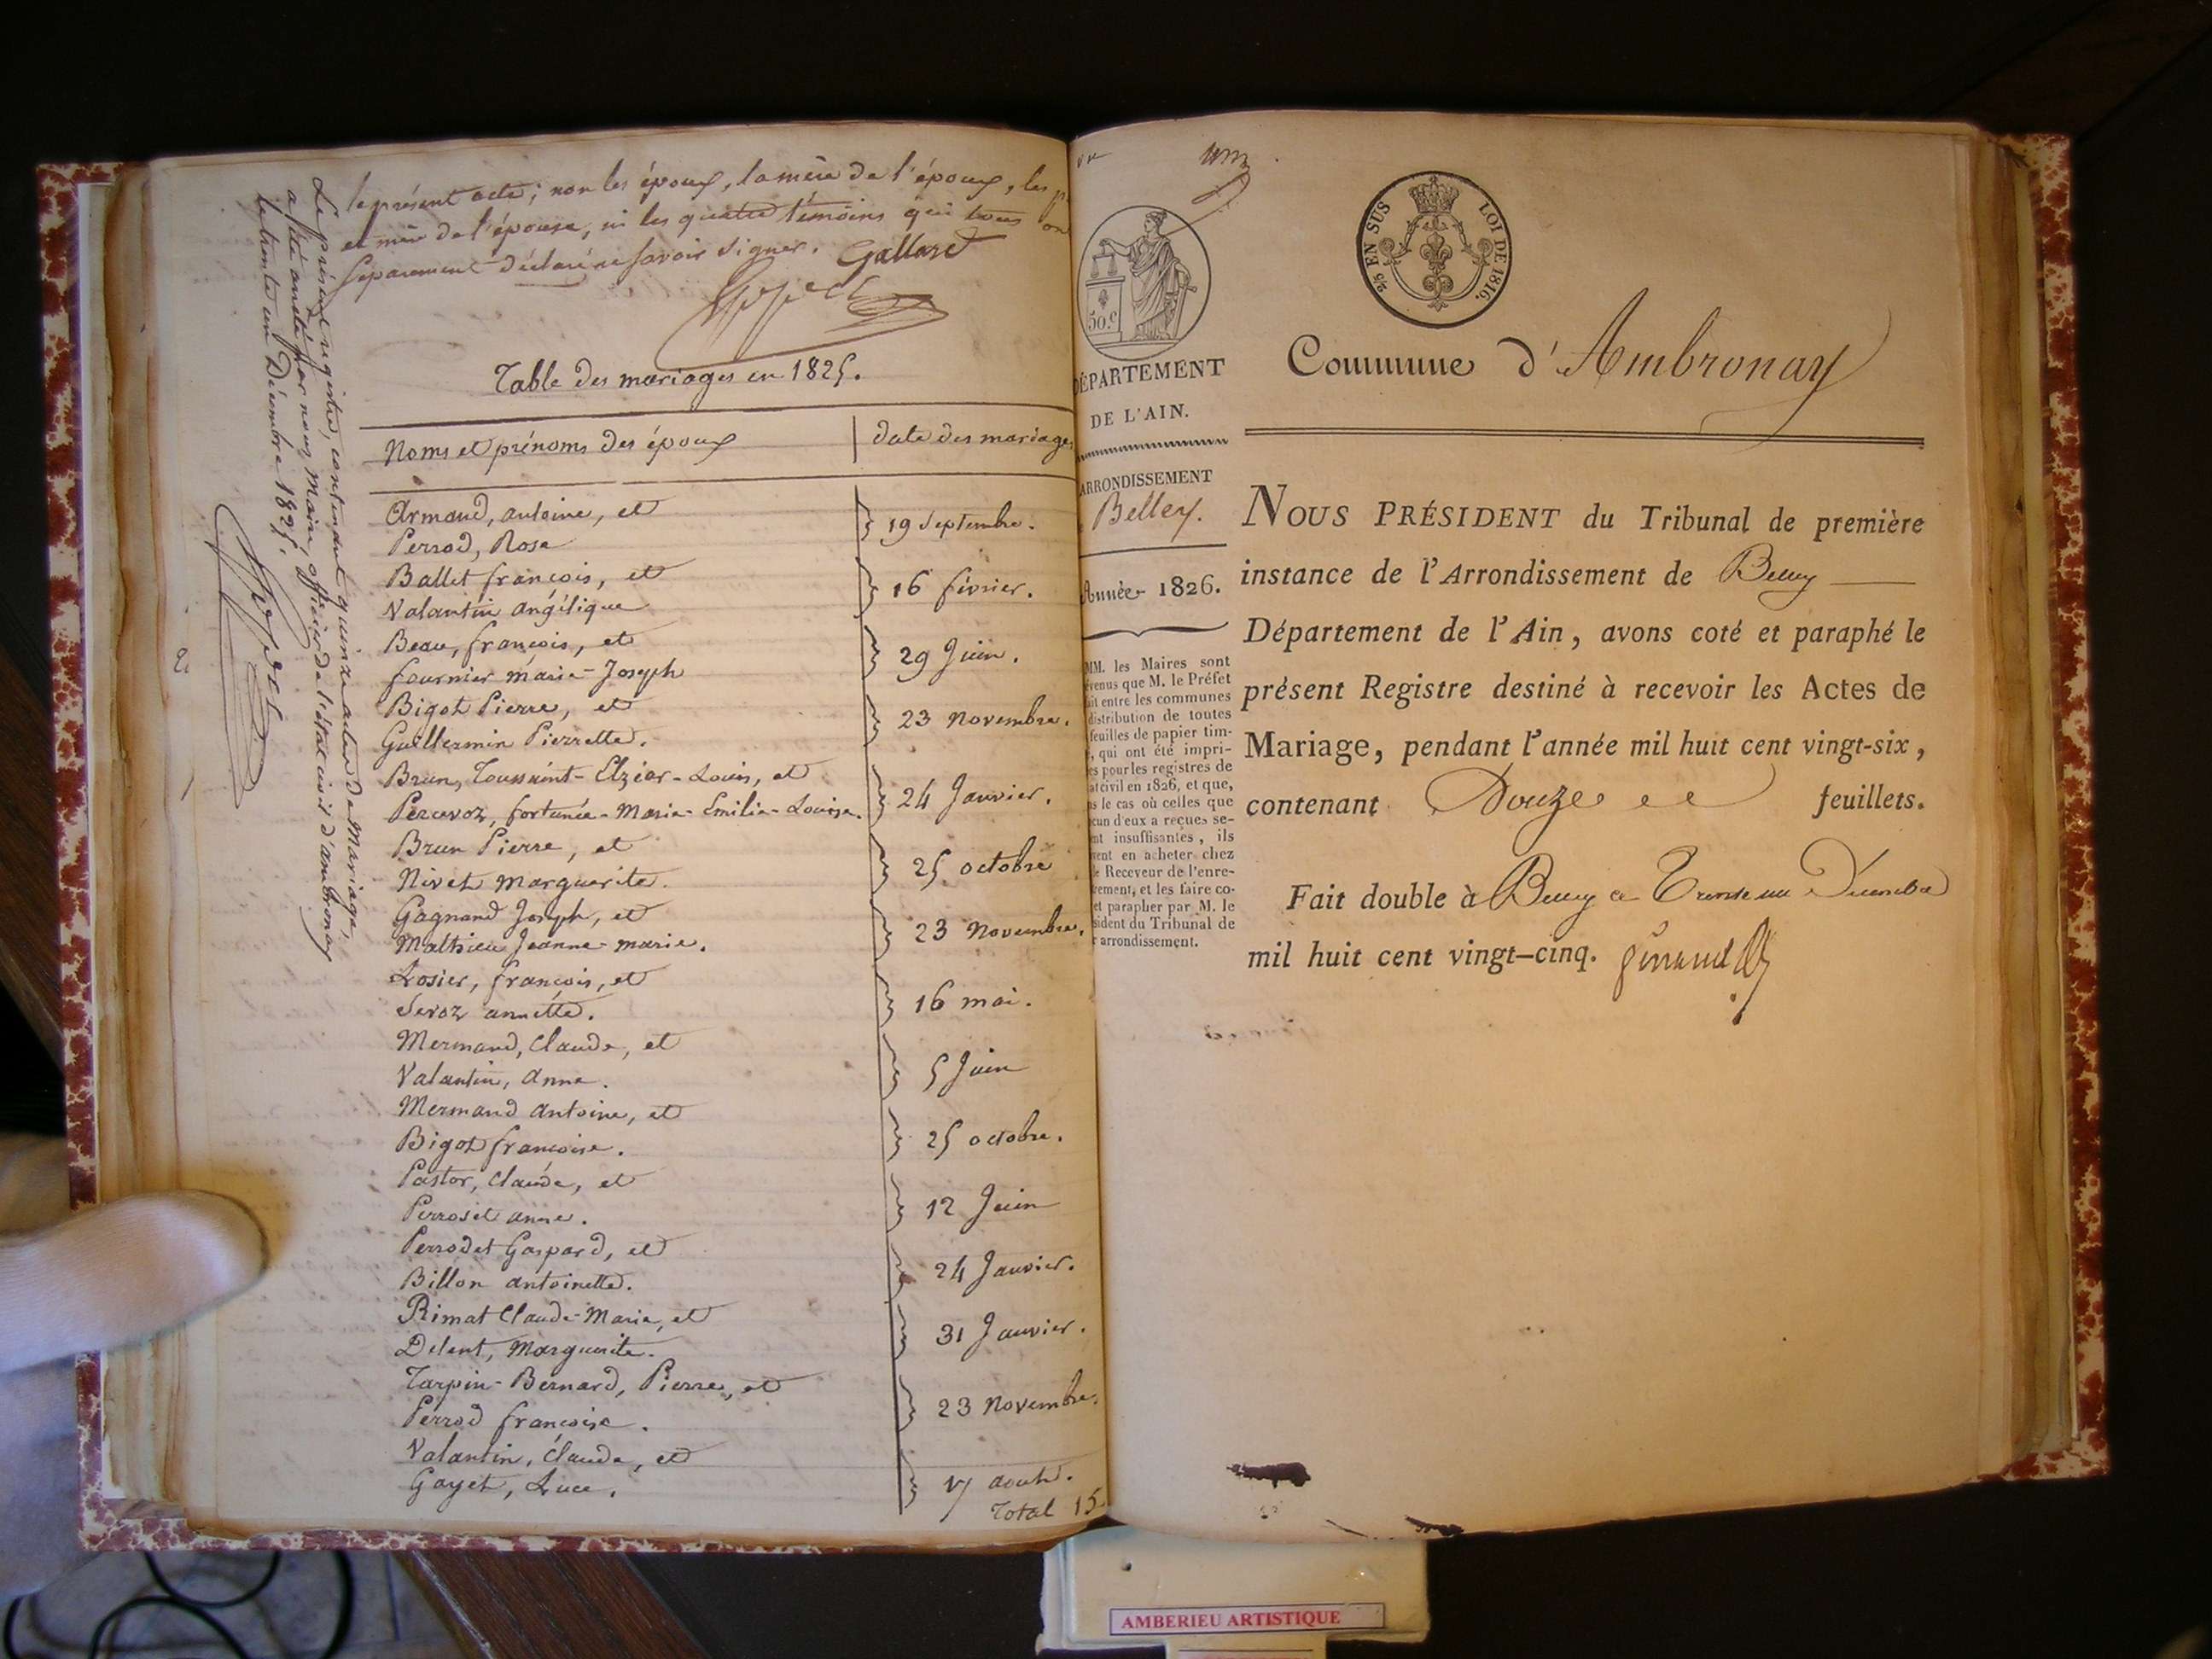 le présent acte; non les époux, la mère de l'époux, les
et mère de l'épouse, ni les quatre témoins qui tous
séparement déclaré ne savoir signer. Gallard
Table des mariages en 1825.
Noms et prénoms des époux
date des mariages
Armand, antoine, et
Perrod, Rose
19 Septembre.
Ballet françois, et
Valantin angélique
16 février.
Beau, françois, et
fournier marie-Joseph
29 Juin.
Bigot Pierre, et
Guillermin Pierrette.
23 novembre.
Brun, Toussaint-Elzéar-Louis, et
Percevoz, fortunée-Marie-Emilie-Louise.
24 Janvier.
Brun Pierre, et
Nivet Marguerite.
25 octobre
Gagnand Joseph, et
Mathieu Jeanne-marie.
23 Novembre.
Losier, françois, et
Sevoz annette.
16 mai.
Mermand, Claude, et
Valantin, Anne.
5 Juin
Mermand antoine, et
Bigot francoise.
25 octobre.
Pastor, Claude, et
Perroset anne.
12 Juin
Perrodet Gaspard, et
Billon antoinette.
24 Janvier.
Rimat Claude-Marie, et
Delent, Marguerite.
31 Janvier.
Tarpin-Bernard, Pierre, et
Perrod francoise.
23 Novembre.
Valantin, Claude, et
Gayet, Luce.
17 aout.
Total 15
Le présent registre, contenant quinze actes de Mariage,
a été arrêté par nous Maire, officier de l'état civil d'ambronay
le trente un Décembre 1825.
2/5 EN SUS
LOI DE 1816.
50.c
DÉPARTEMENT
DE L'AIN.
ARRONDISSEMENT
Belley.
Année 1826.
MM. les Maires sont
venus que M. le Préfet
ait entre les communes
distribution de toutes
feuilles de papier tim-
, qui ont été impri-
es pour les registres de
at civil en 1826, et que,
s le cas où celles que
cun d'eux a reçues se-
nt insuffisantes, ils
vent en acheter chez
le Receveur de l'enre-
rement, et les faire co-
et parapher par M. le
sident du Tribunal de
r arrondissement.
Commune d'Ambronay
NOUS PRÉSIDENT du Tribunal de première
instance de l'Arrondissement de Belley
Département de l'Ain, avons coté et paraphé le
présent Registre destiné à recevoir les Actes de
Mariage, pendant l'année mil huit cent vingt-six,
contenant Douze feuillets.
Fait double à Belley ce Trente un Décembre
mil huit cent vingt-cinq.
AMBERIEU ARTISTIQUE